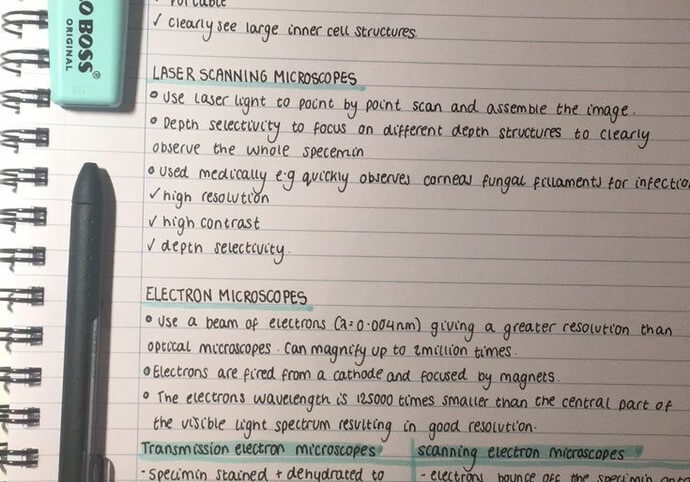 BOSS®
ORIGINAL
Portable
✓ clearly see large inner cell structures.
LASER SCANNING MICROSCOPES
• Use laser light to point by point scan and assemble the image.
• Depth selectivity to focus on different depth structures to clearly
observe the whole specemin
• Used medically e.g quickly observes corneas fungal fillaments for infectio
✓ high resolution
✓ high contrast
✓ depth selectivity.
ELECTRON MICROSCOPES
• Use a beam of electrons (λ=0.004nm) giving a greater resolution than
optical microscopes. Can magnify up to 2million times.
• Electrons are fired from a cathode and focused by magnets.
• The electrons wavelength is 125000 times smaller than the central part of
the visible light spectrum resulting in good resolution.
Transmission electron microscopes
- Specimin stained + dehydrated to
scanning electron microscopes
- electrons bounce off the specimin onto